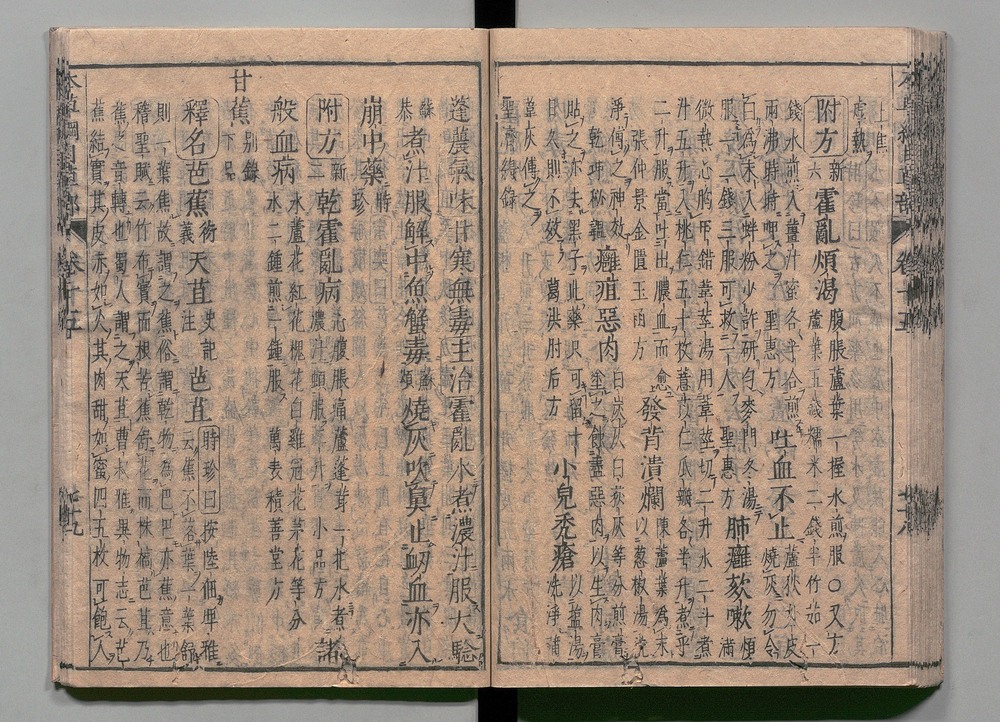 上焦
虛熱
附方
新六
霍亂煩渴
腹脹蘆葉一握水煎服○又方
蘆葉五錢糯米二錢半竹茹一
錢水煎入薑汁蜜各半合煎
兩沸時時呷之 聖惠方
吐血不止
蘆荻外皮
燒灰勿令
白為末入蚌粉少許研勻麥門冬湯
服一二錢三服可救一人 聖惠方
肺癰欬嗽
煩滿
微熱心胸甲錯葦莖湯用葦莖切二升水二斗煮
汁五升入桃仁五十枚薏苡仁瓜瓣各半升煮取
二升服當吐出膿血而愈
張仲景金匱玉函方
發背潰爛
陳蘆葉為末
以葱椒湯洗
淨傅之神效
乾坤秘韞
癰疽惡肉
白炭灰白荻灰等分煎膏
塗之蝕盡惡肉以生肉膏
貼之亦去黑子此藥只可留十
日久則不效 葛洪肘后方
小兒禿瘡
以鹽湯
洗淨蒲
葦灰傅之
聖濟錄
蓬蕽氣味甘寒無毒主治霍亂水煮濃汁服大驗
蘇恭
煮汁服解中魚蟹毒
蘇頌
燒灰吹鼻止衂血亦入
崩中藥
時珍
附方
新二
乾霍亂病
心腹脹痛蘆蓬茸一把水煮
濃汁頓服二升 小品方
諸
般血病
水蘆花紅花槐花白雞冠花茅花等分
水二鍾煎一鍾服 萬表積善堂方
甘蕉
別錄
下品
釋名芭蕉
衍義
天苴
史記
注
芭苴
時珍曰按陸佃埤雅
云蕉不落葉一葉舒
則一葉焦故謂之蕉俗謂乾物為巴巴亦蕉意也
稽聖賦云竹布實而根苦蕉舒花而株槁芭苴乃
蕉之音轉也蜀人謂之天苴曹叔雅異物志云芭
蕉結實其皮赤如火其肉甜如蜜四五枚可飽人
本草綱目草部 卷十五
七十九